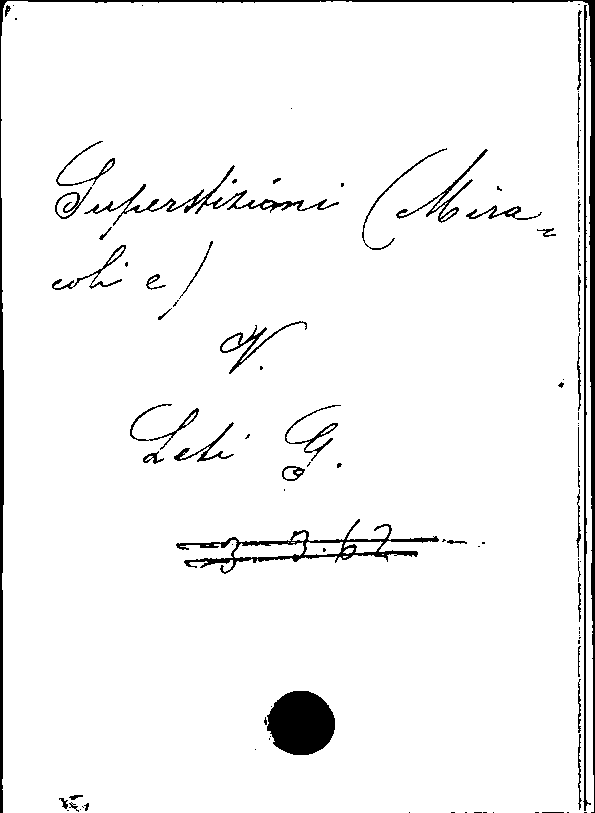 Superstizioni (Mira=
coli e)
V.
Leti G.
3 3.62